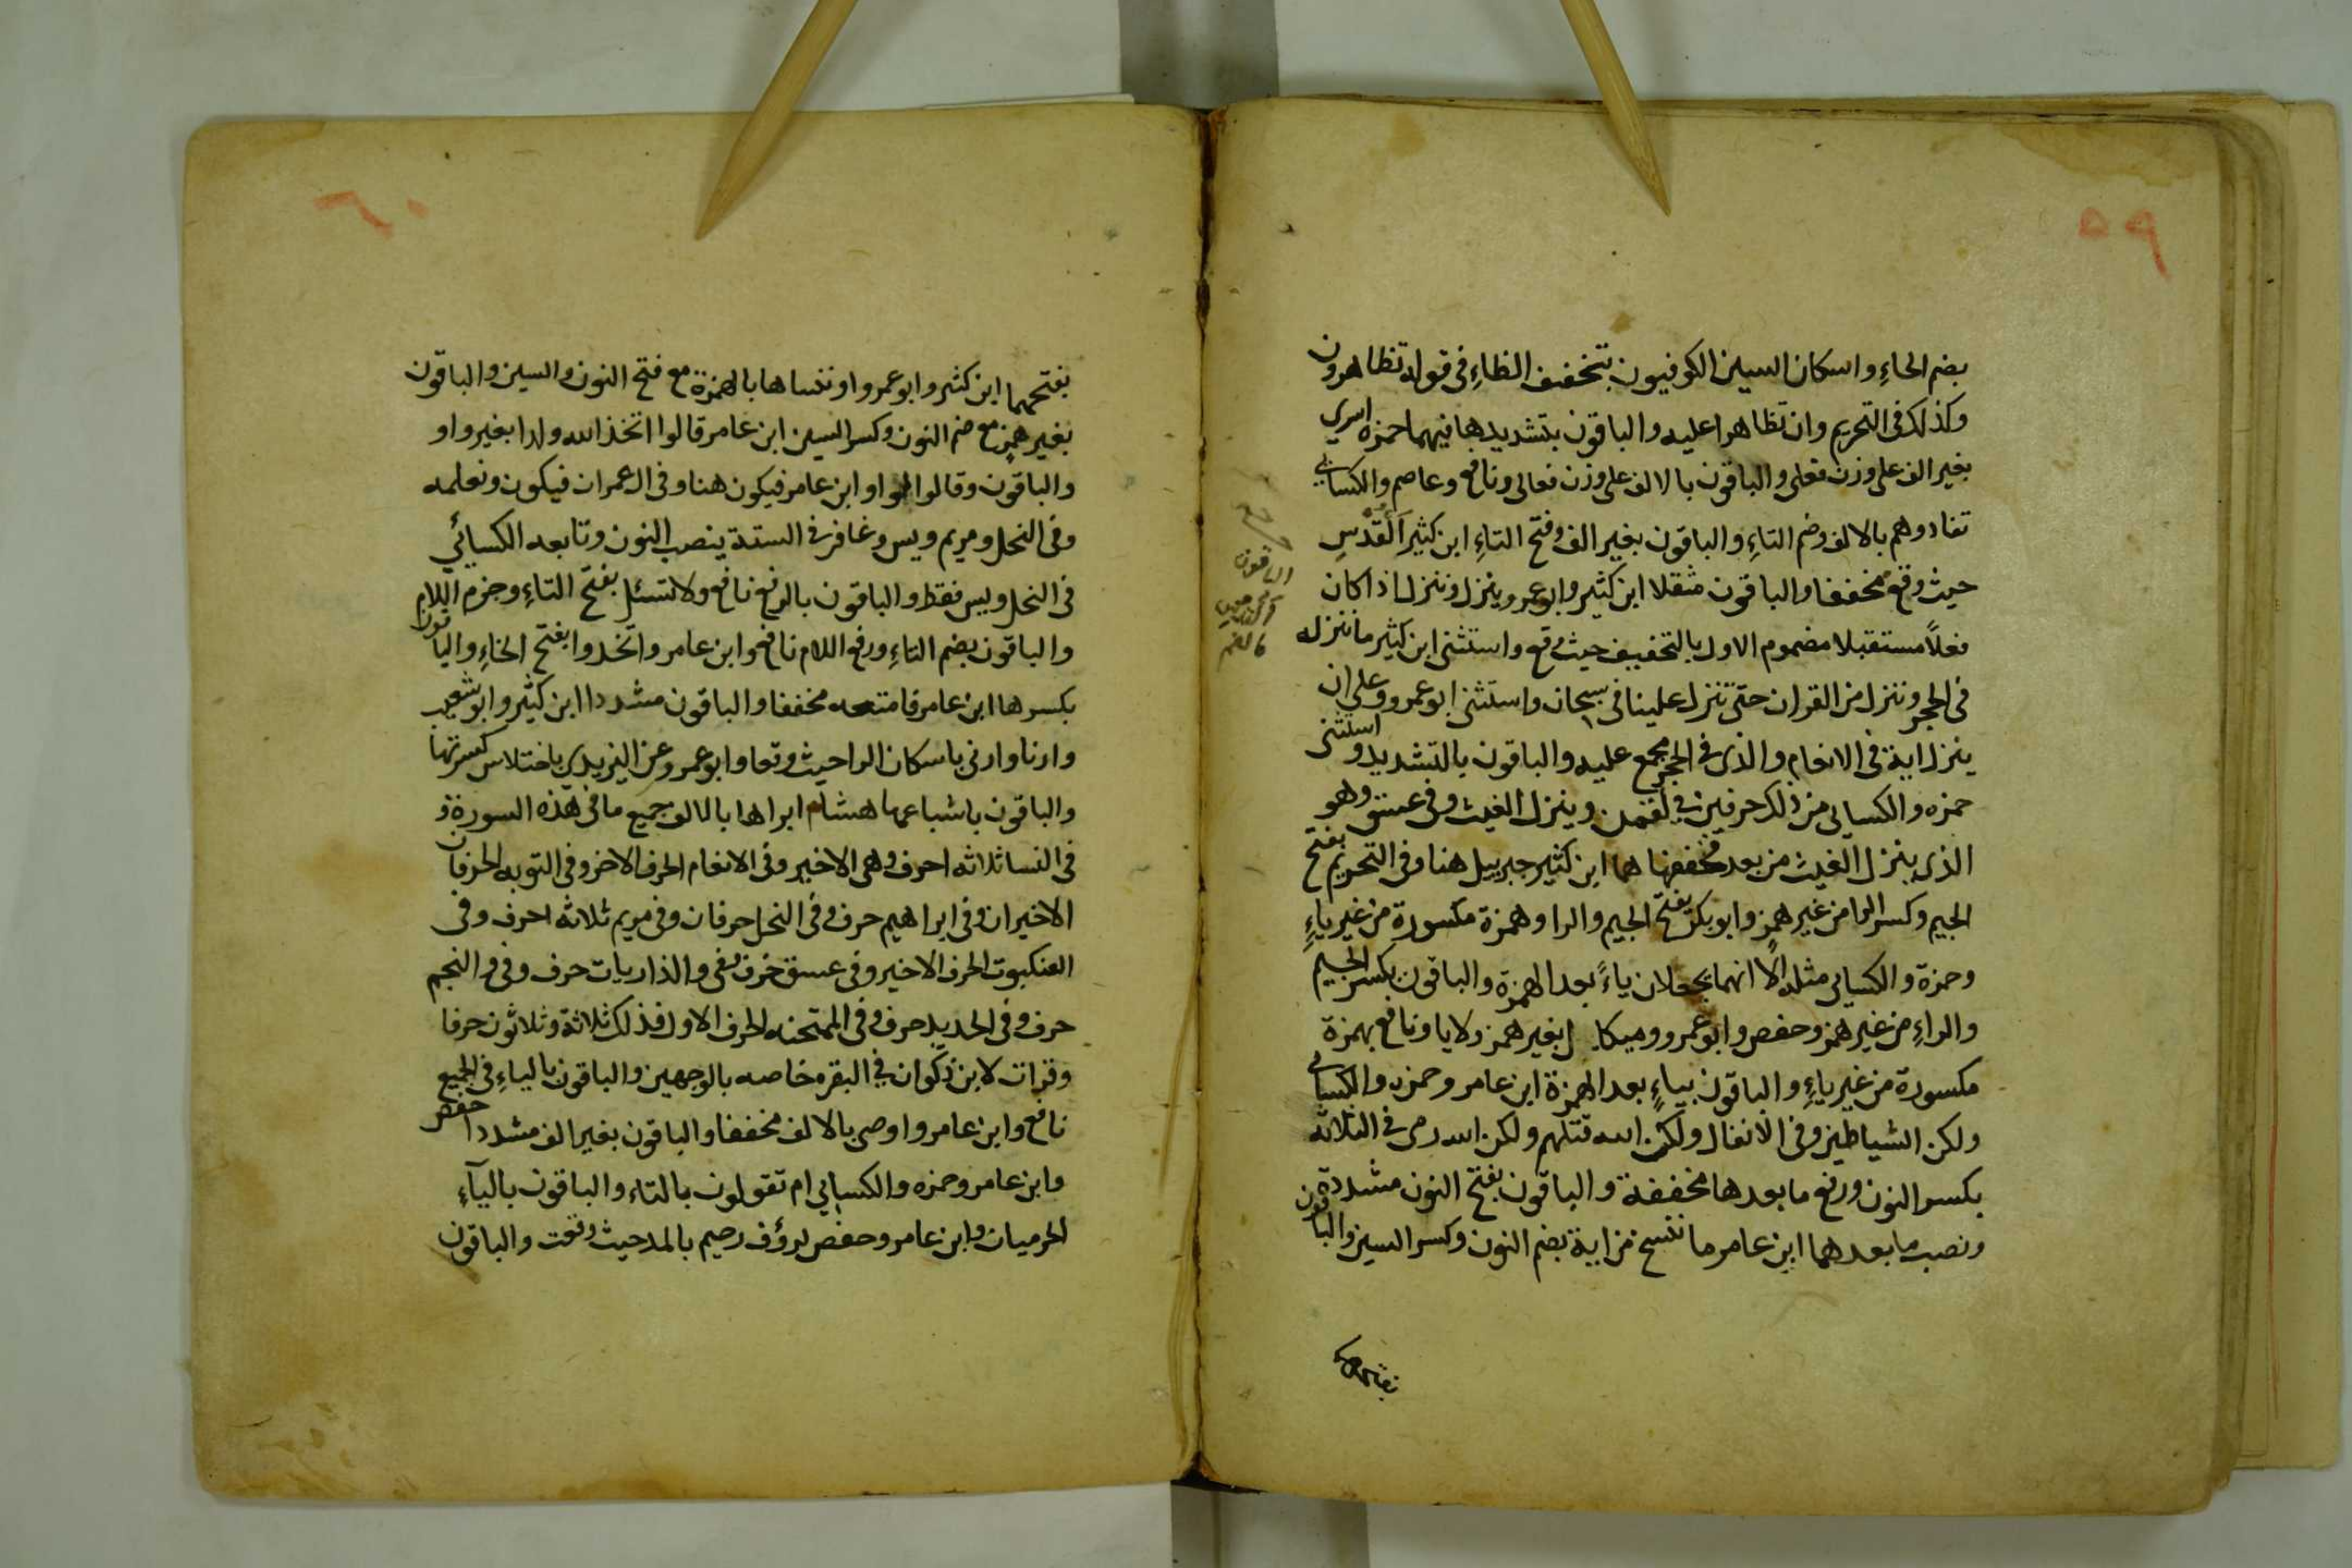 ٥٩
بضم الحاءِ واسكان السين الكوفيون بتخفيف الظاءِ فى قوله تظاهرون
وكذلك فى التحريم وان تظاهرا عليه والباقون بتشديدها فيهما حمزه اسرى
بغير الف على وزن فعلى والباقون بالالف على وزن فعالى ونافع وعاصم والكسائى
تفادوهم بالالف وضم التاءِ والباقون بغير الف وفتح التاءِ ابن كثير القدس
حيث وقع مخففا والباقون مثقلا ابن كثير وابو عمرو ينزل وننزل اذا كان
فعلاً مستقبلا مضموم الاول بالتخفيف حيث وقع واستثنى ابن كثير ماننزله
فى الحجر وننزل من القران حتى تنزل علينا فى سبحان واستثنى ابو عمرو وعلى ان
ينزل اية فى الانعام والذى فى الحجر مجمع عليه والباقون بالتشديد واستثنى
حمزه والكسائى من ذلك حرفين فى لقمن وينزل الغيث وفى عسق وهو
الذى ينزل الغيث من بعد فخففهما هما ابن كثير جبرييل هنا وفى التحريم بفتح
الجيم وكسر الرا من غير همز وابو بكر بفتح الجيم والرا وهمزة مكسورة من غير ياءِ
وحمزة والكسائى مثله الا انهما يجعلان ياءً بعد الهمزة والباقون بكسر الجيم
والراءِ من غير همز وحفص وابو عمرو وميكال بغير همز ولا يا ونافع بهمزة
مكسورة من غير ياءِ والباقون بياءٍ بعد الهمزة ابن عامر وحمزه والكسائى
ولكن الشياطين وفى الانفال ولكن الله قتلهم ولكن الله رمى فى الثلاثه
بكسر النون ورفع ما بعدها مخففة والباقون بفتح النون مشددة
ونصب ما بعدهما ابن عامر ما ننسخ من اية بضم النون وكسر السين والباقون
بفتحهما
٦٠
بفتحهما ابن كثير وابو عمرو او ننساها بالهمزة مع فتح النون والسين والباقون
بغير همز مع ضم النون وكسر السين ابن عامر قالوا اتخذ الله ولدا بغير واو
والباقون وقالوا بالواو ابن عامر فيكون هنا وفى ال عمران فيكون ونعلمه
وفى النحل ومريم ويس وغافر فى الستة ينصب النون وتابعه الكسائي
فى النحل ويس فقط والباقون بالرفع نافع ولا تسئل بفتح التاءِ وجزم اللام
والباقون بضم التاءِ ورفع اللام نافع وابن عامر واتخذوا بفتح الخاءِ والباقون
بكسرها ابن عامر فامتعه مخففا والباقون مشددا ابن كثير وابو شعيب
وارنا وارنى باسكان الرا حيث وقعا وابو عمرو عن اليزيدى باختلاس كسرتها
والباقون باشباعها هشام ابراهام بالالف جميع ما فى هذه السورة و
فى النسا ثلاثه احرف وهى الاخير وفى الانعام الحرف الاخر وفى التوبه الحرفان
الاخيران وفى ابراهيم حرف وفى النحل حرفان وفى مريم ثلاثه احرف وفى
العنكبوت الحرف الاخير وفى عسق حرف وفى والذاريات حرف وفى والنجم
حرف وفى الحديد حرف وفى الممتحنه الحرف الاول فذلك ثلاثة وثلاثون حرفا
وقرات لابن ذكوان فى البقره خاصه بالوجهين والباقون بالياءِ فى الجميع
نافع وابن عامر واوصى بالالف مخففا والباقون بغير الف مشددا حفص
وابن عامر وحمزه والكسائى ام تقولون بالتاء والباقون بالياءِ
الحرميان وابن عامر وحفص لرؤف رحيم بالمد حيث وقعت والباقون